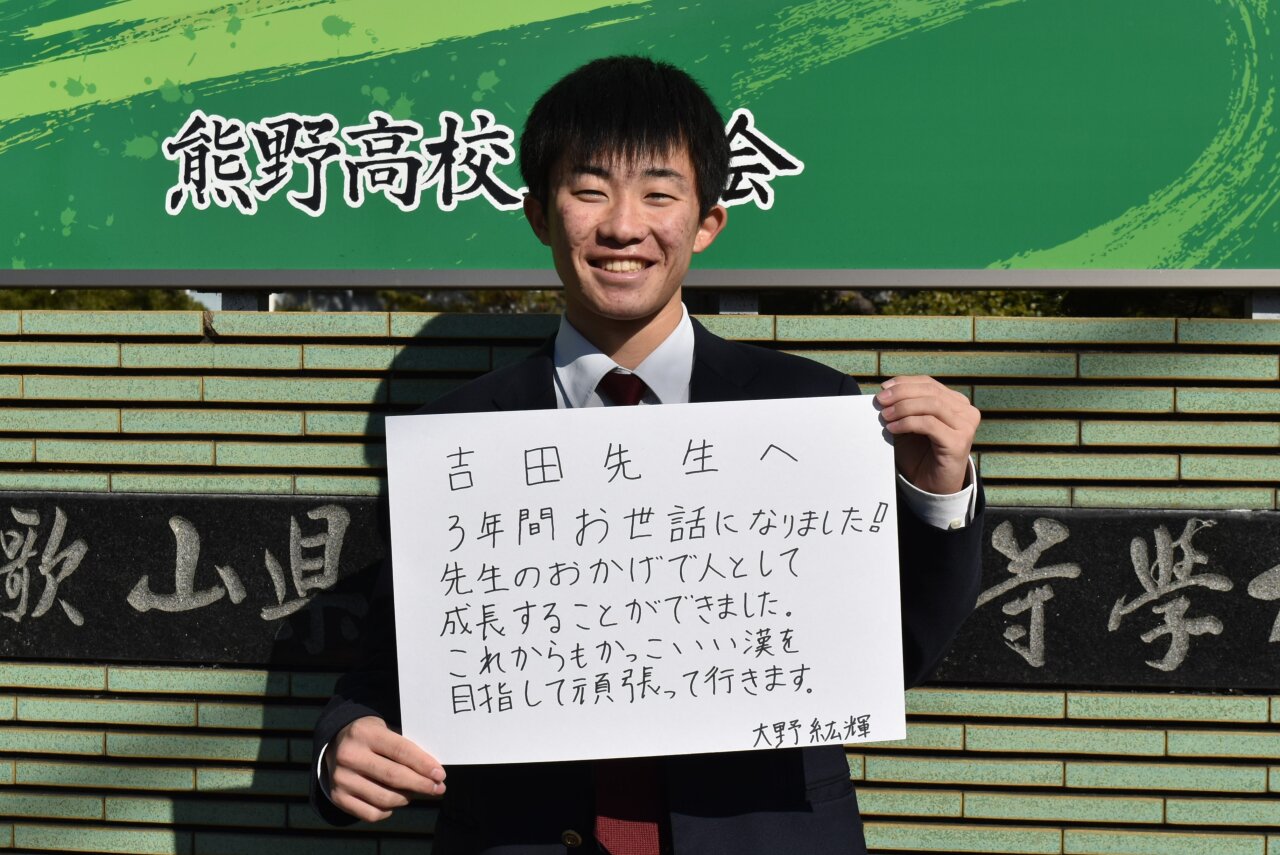 熊野高校
会
吉田先生へ
3年間お世話になりました!
先生のおかげで人として
成長することができました。
これからもかっこいい漢を
目指して頑張って行きます。
大野紘輝
歌山県
等學